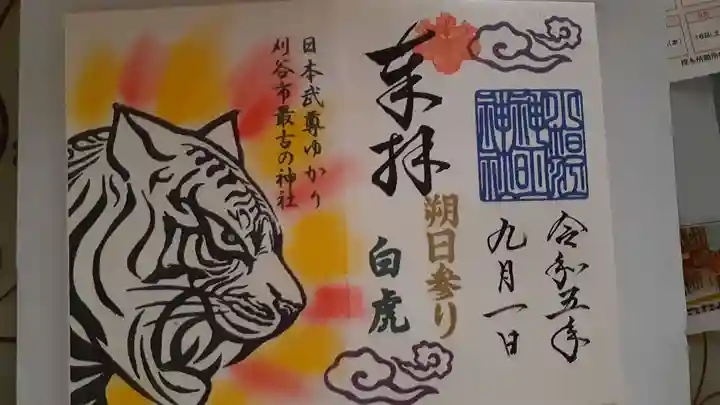 令和五年
九月一日
奉拝
朔日参り
白虎
日本武尊ゆかり
刈谷市最古の神社